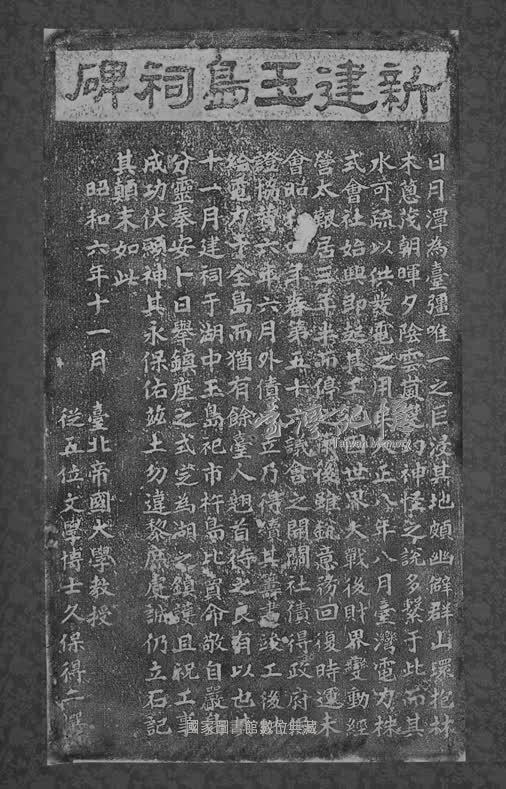 新建玉島祠碑
日月潭為臺疆唯一之巨浸其地頗幽僻群山環抱林
木蔥茂朝暉夕陰雲嵐變幻神怪之說多繫于此而其
水可疏以供發電之用大正八年八月臺灣電力株
式會社始興即起其工世界大戰後財界變動經
營太艱居三年半而停爾後雖銳意務回復時運未
會昭和四年春第五十六議會之開關社債得政府保
證協贊六年六月外債成立乃得續其籌畫竣工後供
給電力于全島而猶有餘臺人翹首待之良有以也
十一月建祠于湖中玉島祀市杵島比賣命敬自嚴島
分靈奉安卜日舉鎮座之式芝為湖之鎮護且祝工事
成功伏願神其永保佑茲土勿違黎庶虔誠仍立石記
其顛末如此
昭和六年十一月 臺北帝國大學教授
從五位文學博士久保得二撰
臺灣記憶
Taiwan Memory
國家圖書館數位典藏